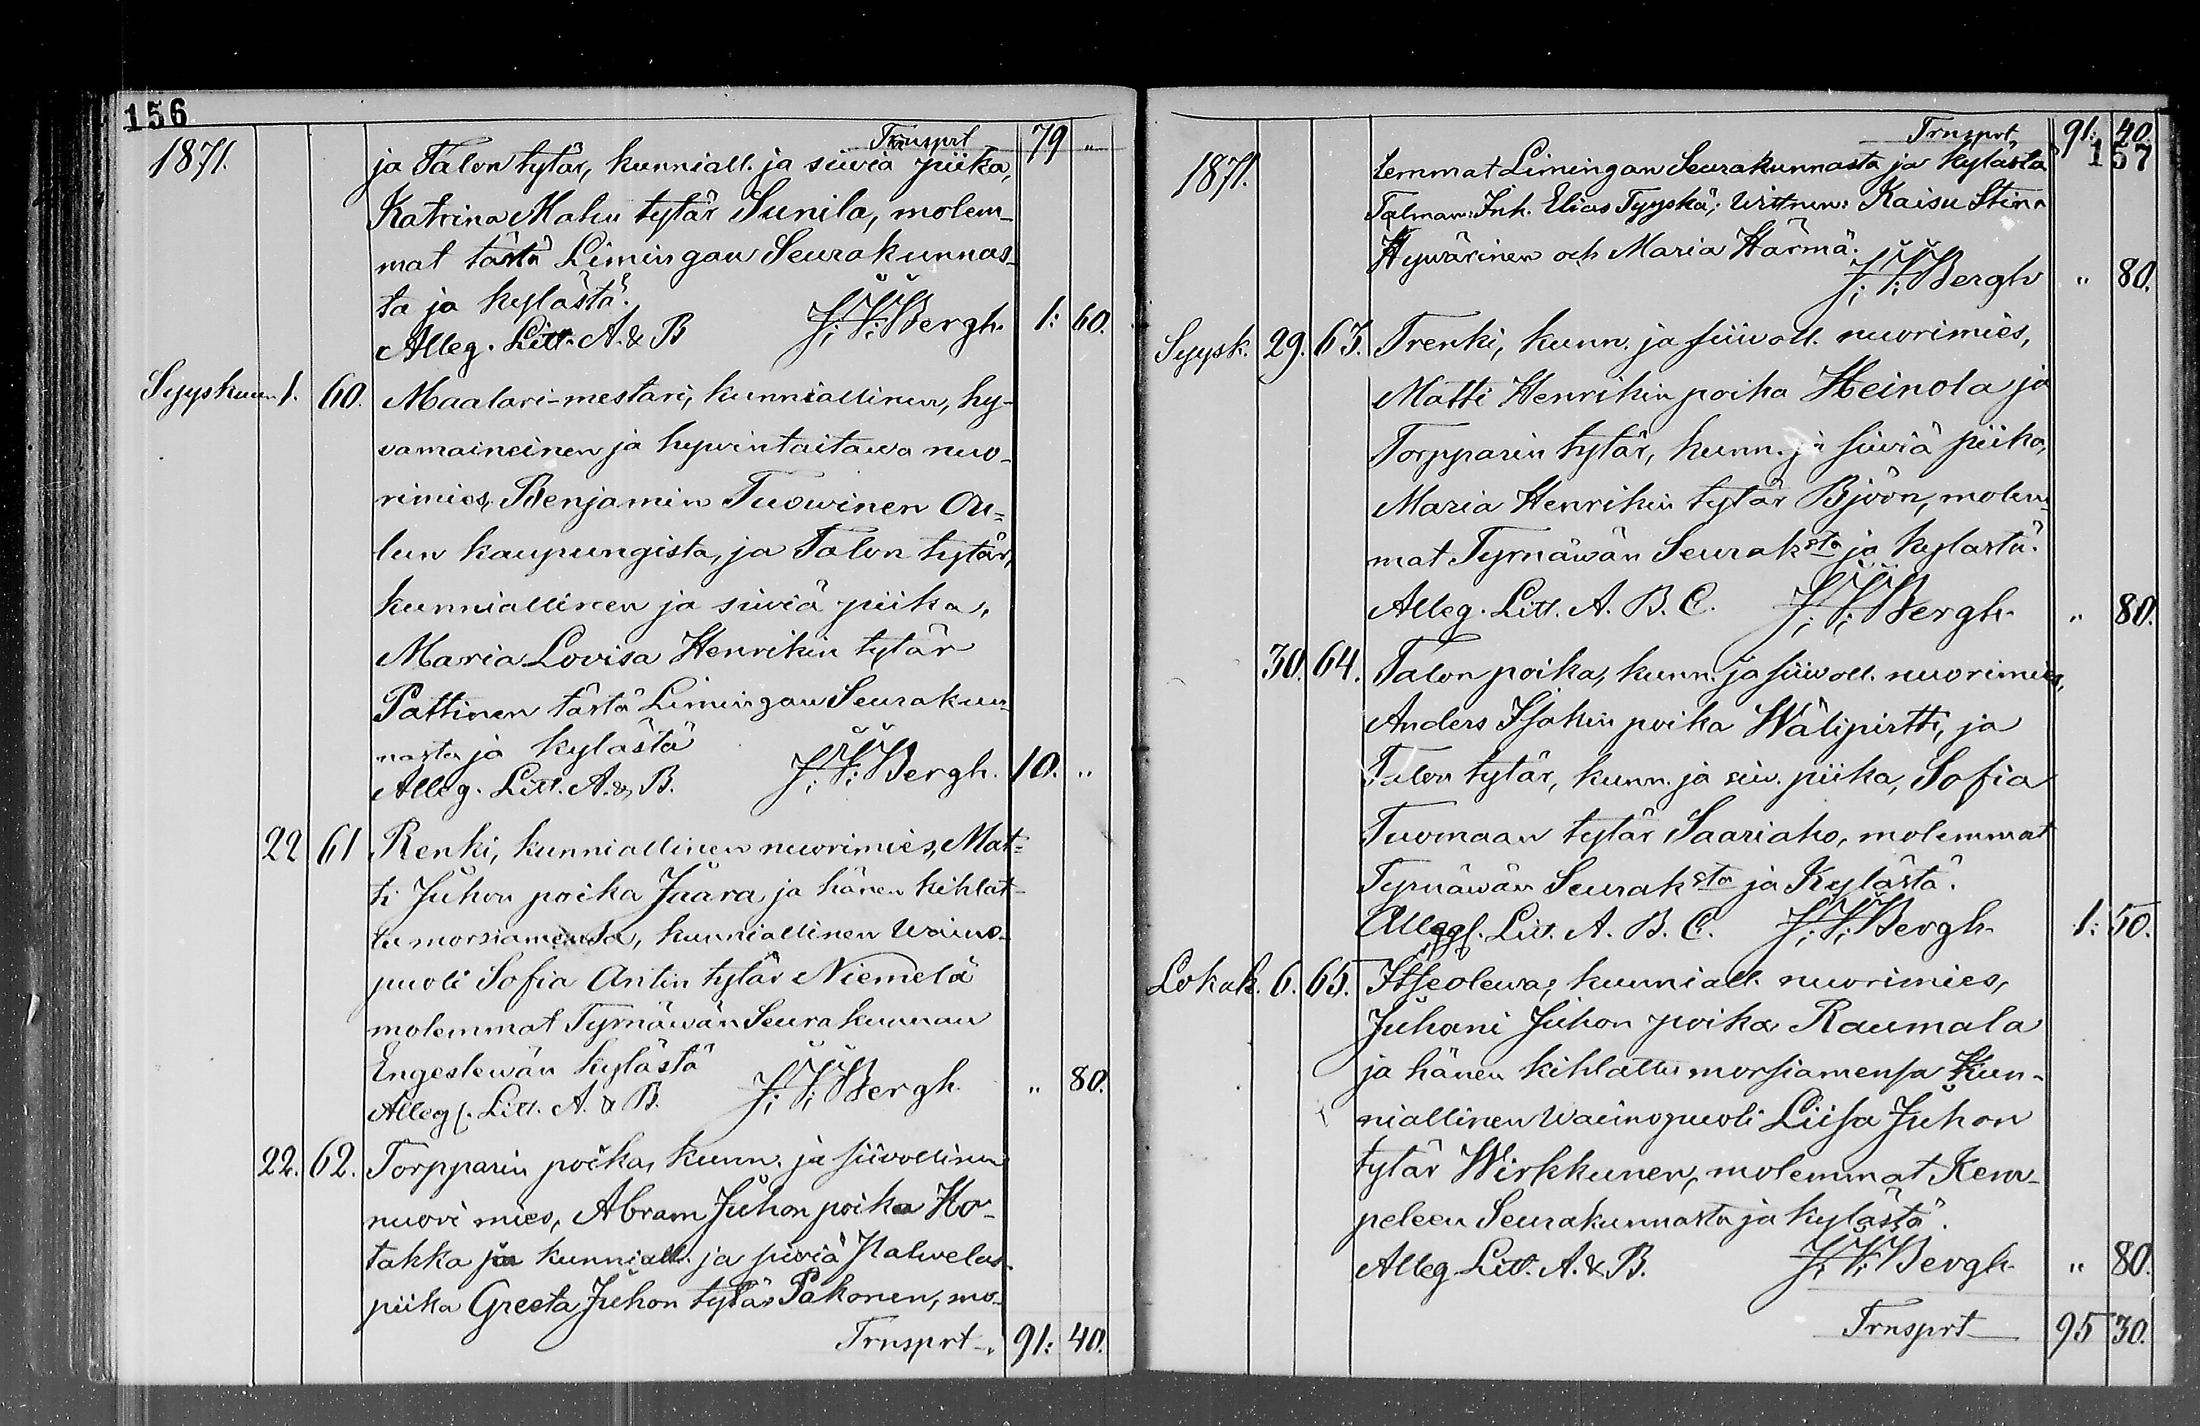 156
Trnsprt 79 "
1871. ja Talon tytär, kunniall. ja siiviä piika,
Katrina Mahu tytär Sunila, molem-
mat tästä Limingan Seurakunnas-
ta ja kylästä.
Alleg. Litt. A. & B Bergh. 1: 60.
Syyskuun 1. 60. Maalari-mestari, kunniallinen, hy-
vamaineinen ja hywintaitawa nuo-
rimies, Benjamin Tuowinen Ou-
lun kaupungista, ja Talon tytär,
kunniallinen ja siiviä piika,
Maria Lovisa Henrikin tytär
Pattinen tästä Limingan Seurakun-
nasta ja kylästä
Alleg. Litt. A. & B. Bergh. 10. "
22 61 Renki, kunniallinen nuorimies, Mat-
ti Juhon poika Jaara, ja hänen kihlat-
tu morsiamensa, kunniallinen waimo-
puoli Sofia Antin tytär Niemelä
molemmat Tyrnäwän Seurakunnan
Engeslewän kylästä
Alleg. Litt. A. & B. Bergh " 80.
22. 62. Torpparin poika, kunn. ja siivollinen
nuori mies, Abram Juhon poika Ho-
takka ja kunniall. ja siviä Palwelus-
piika Greeta Juhon tytär Pakonen, mo-
Trnsprt 91: 40.
Trnsprt 91: 40.
157
1871. lemmat Limingan Seurakunnasta ja kylästä
Talman: Inh. Elias Tyyskä; Wittnen: Kaisu Stina
Hywärinen och Maria Härmä.
Bergh " 80.
Syysk. 29. 63. Trenki, kunn. ja siivoll. nuorimies,
Matti Henrikin poika Heinola ja
Torpparin tytär, kunn. ja siiviä piika,
Maria Henrikin tytär Björn, molem-
mat Tyrnäwän Seuraksta ja kylästä.
Alleg. Litt. A. B. C. Bergh " 80.
30. 64. Talon poika, kunn. ja siivoll. nuorimies,
Anders Isakin poika Wälipirtti, ja
Talon tytär, kunn. ja siiv. piika, Sofia
Tuomaan tytär Saariaho, molemmat
Tyrnäwän Seuraksta ja Kylästä.
Alleg. Litt. A. B. C. Bergh 1: 50.
Lokak. 6. 65. Itseolewa, kunniall. nuorimies,
Juhani Juhon poika Raumala
ja hänen kihlattu morsiamensa Kun-
niallinen waimopuoli Liisa Juhon
tytär Wirkkunen, molemmat Kem-
peleen Seurakunnasta ja kylästä.
Alleg. Litt. A. & B. Bergh " 80.
Trnsprt 95 30.